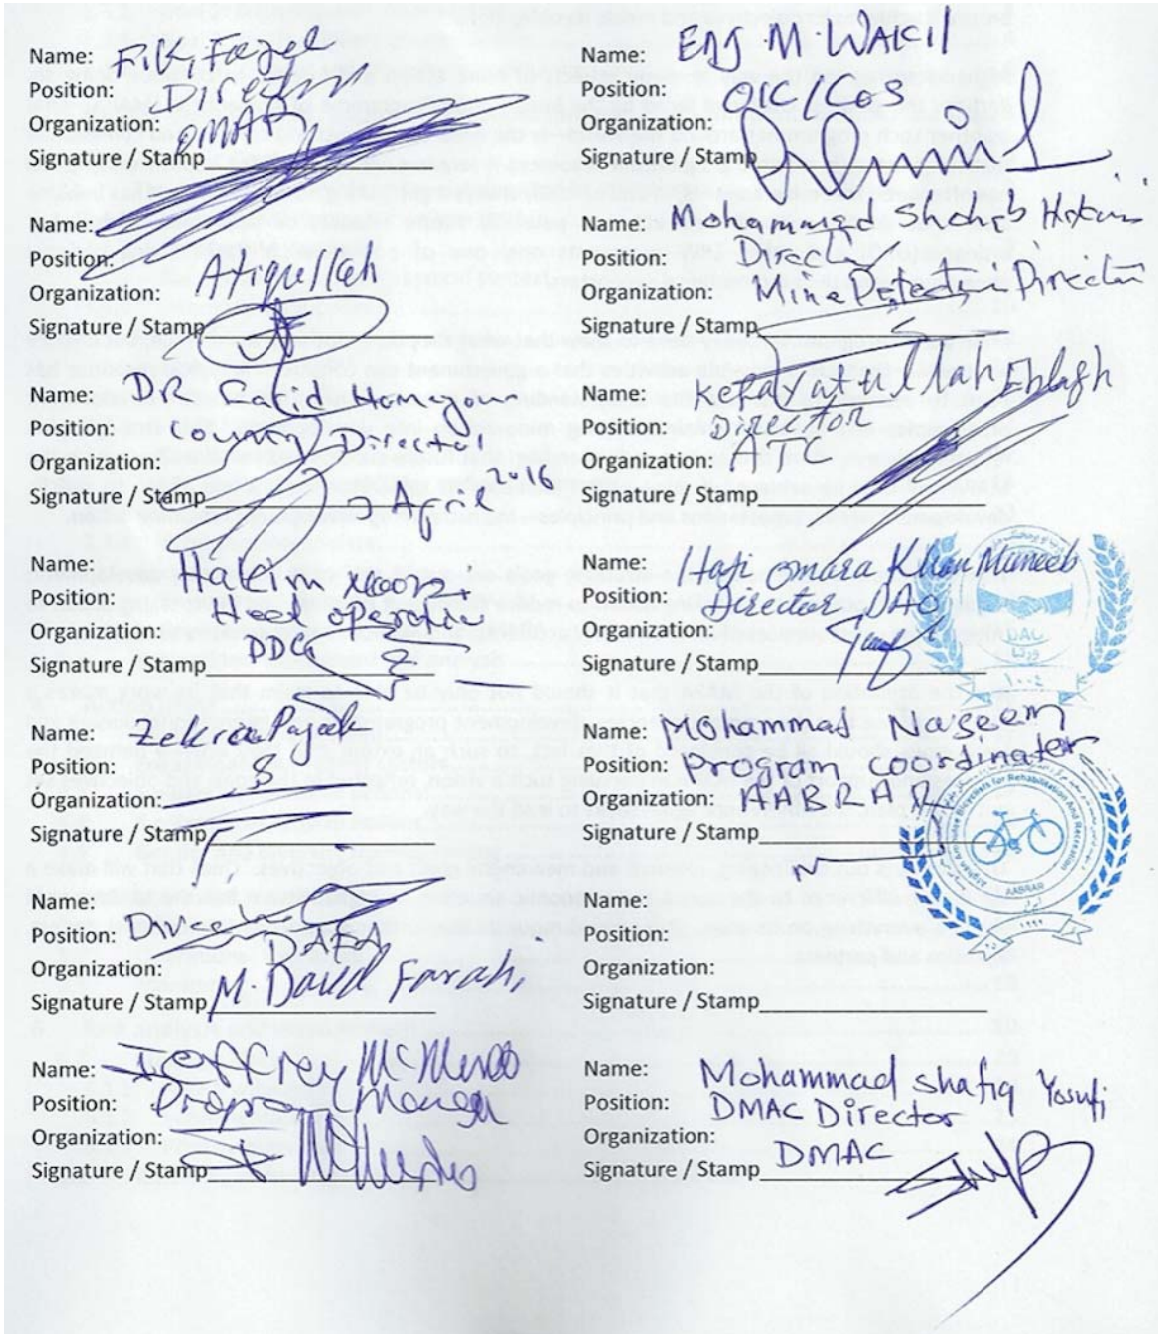 Name: Fazel
Position: Director
Organization: OMAR
Signature / Stamp
Name:
Position: Atiqullah
Organization:
Signature / Stamp
Name: DR. Homayoun
Position: Country Director,
Organization:
Signature / Stamp April 2016
Name: Hakim Noorzi
Position: Head operation
Organization:
DDG
Signature / Stamp
Name: Zekria Payab
Position:
Organization:
Signature / Stamp
Name:
Position: Director
DAFA
Organization:
Signature / Stamp M. Daud Farahi
Name: Jeffrey McMurdo
Position: Program Manager
Organization:
Signature / Stamp
Name: ENG. M. WAKIL
Position:
Organization:
Signature / Stamp
Name: Mohammad Shohab Hakimi
Position: Director
Organization: Mine Detection Director
Signature / Stamp
Name: Kefayatullah Eblagh
Position: Director
Organization: ATC
Signature / Stamp
Name: Haji Omara Khan Muneeb
Position: Director DAO
Organization:
Signature / Stamp
DAO
Name: Mohammad Naseem
Position: Program coordinator
Organization: AABRAR
Signature / Stamp
Afghan Amputee Bicyclists for Rehabilitation And Recreation
AABRAR
Name:
Position:
Organization:
Signature / Stamp
Name: Mohammad shafiq Yosufi
Position: DMAC Director
Organization:
DMAC
Signature / Stamp